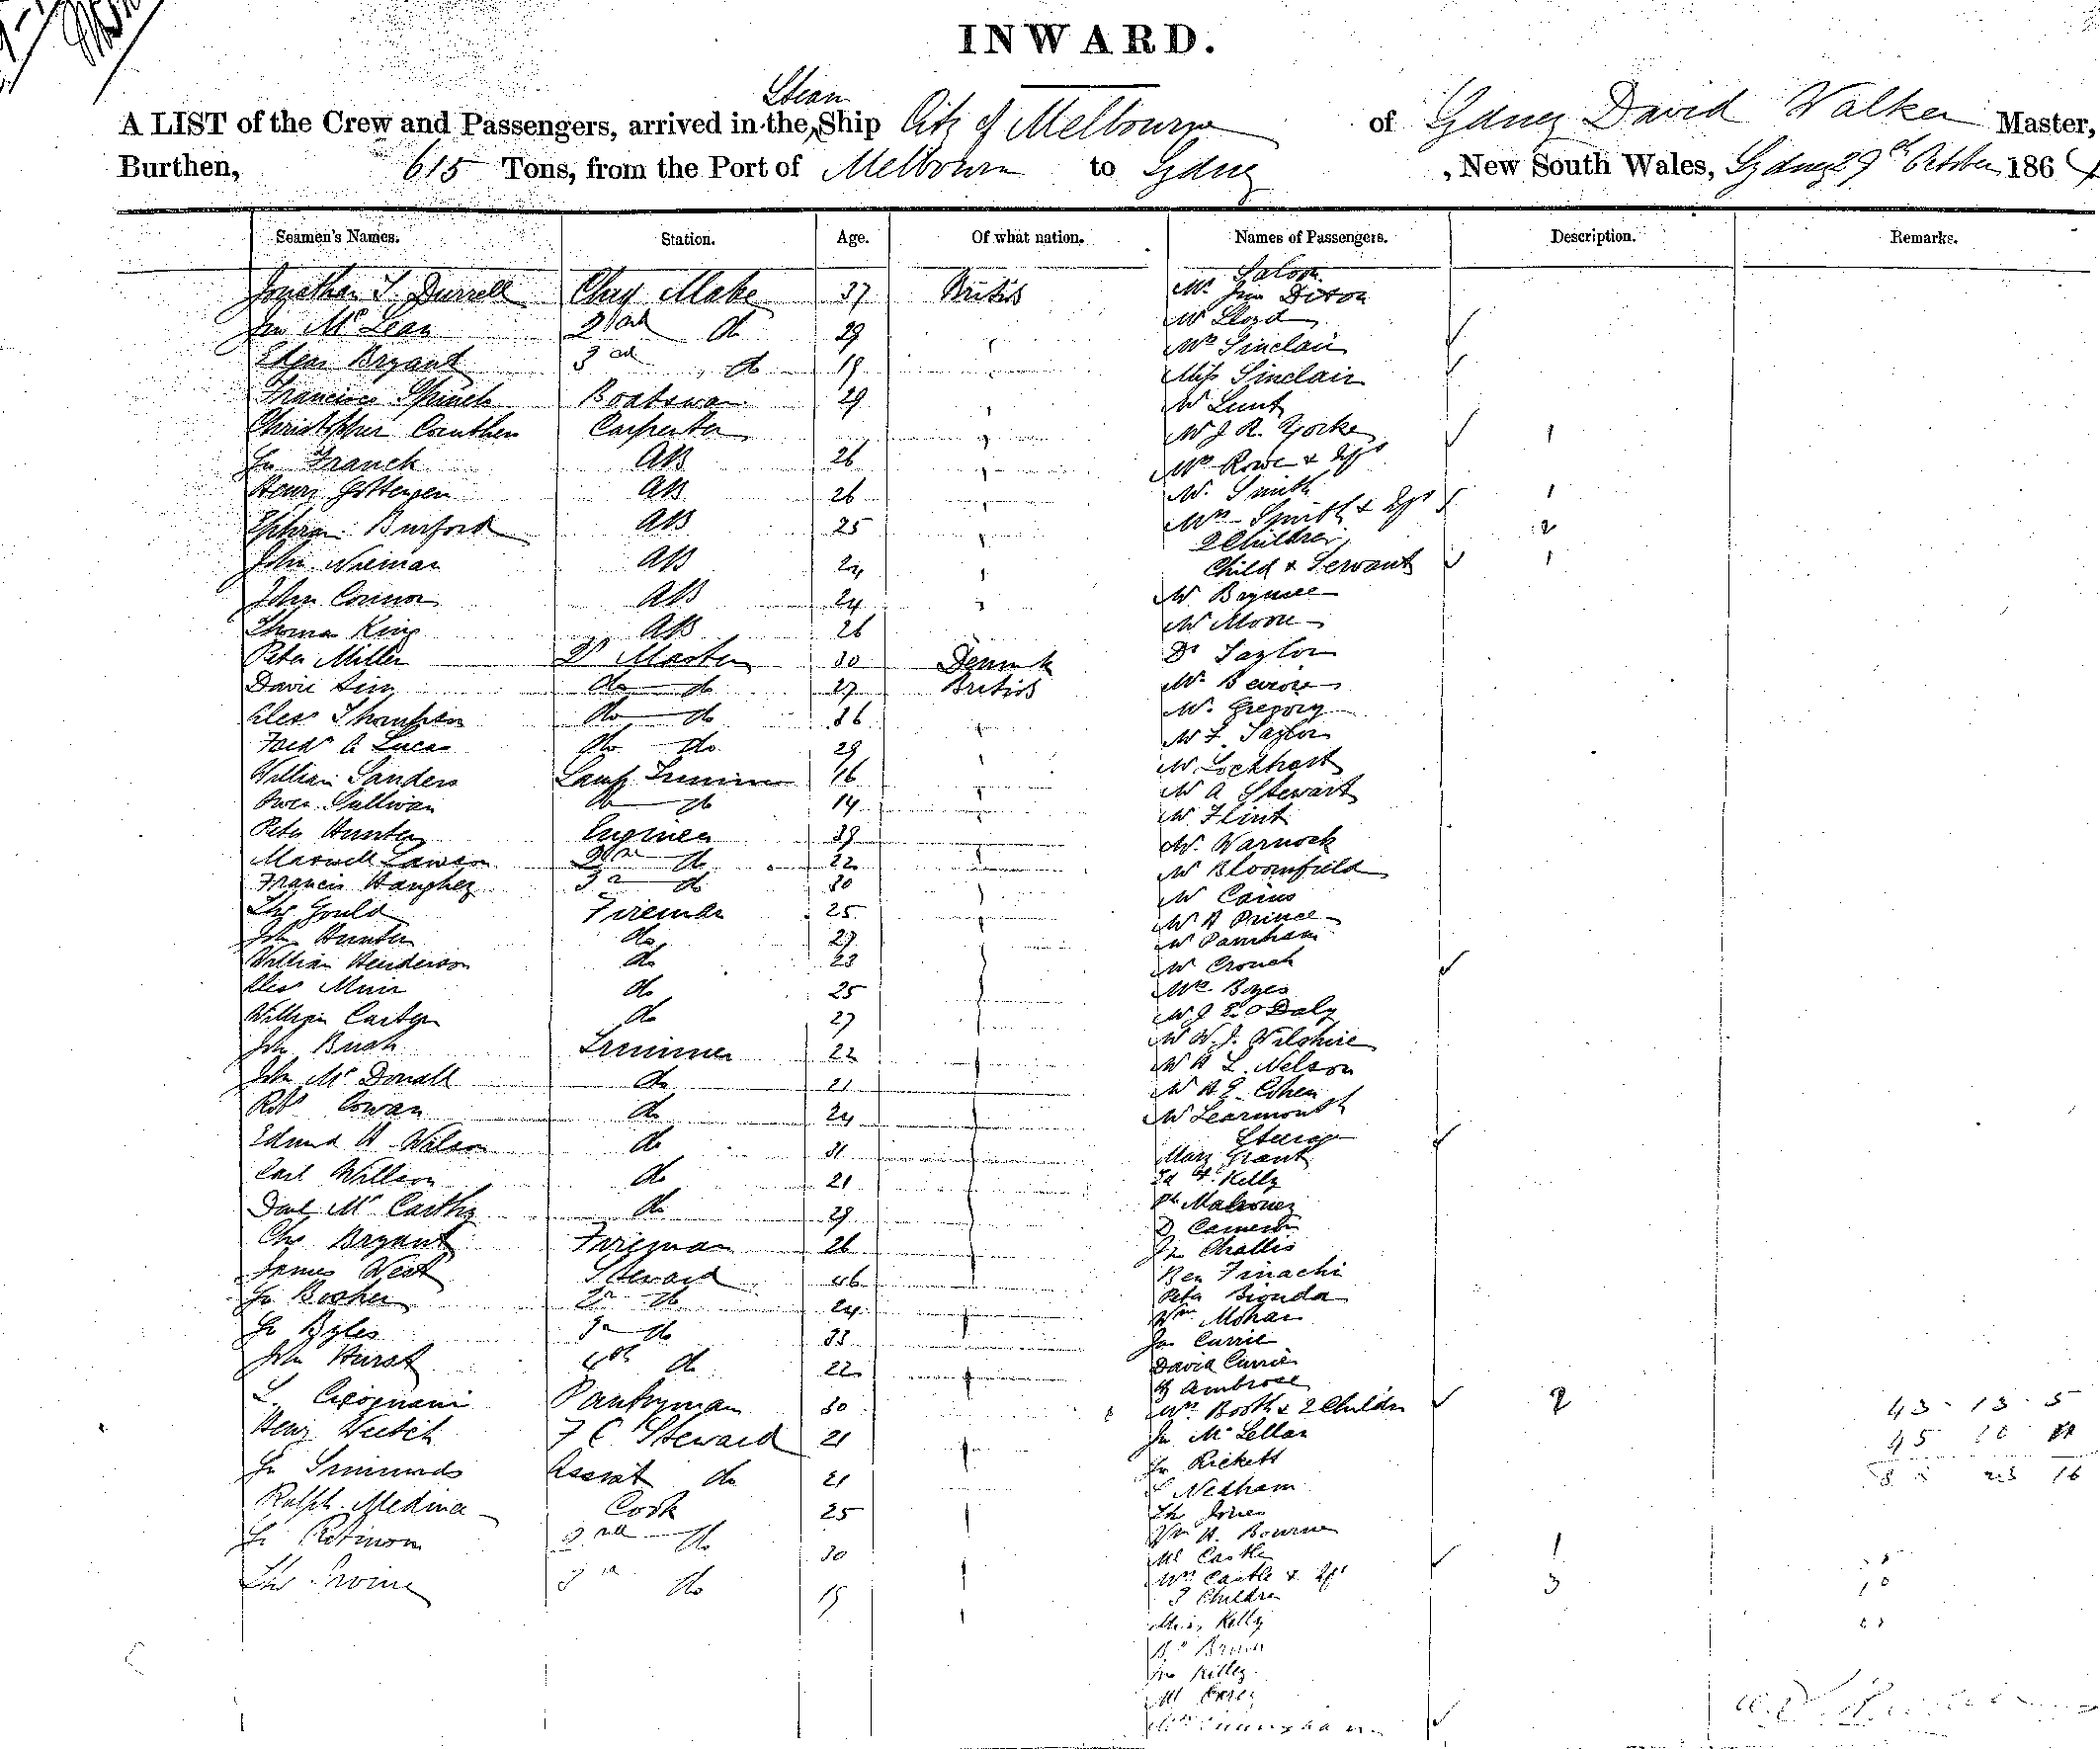 INWARD.
Steam
A LIST of the Crew and Passengers, arrived in the ^ Ship City of Melbourne of Sydney David Walker Master,
Burthen, 615 Tons, from the Port of Melbourne to Sydney , New South Wales, Sydney 29th October 1864
Seamen's Names. Station. Age. Of what nation. Names of Passengers. Description. Remarks.
Saloon
Jonathan S. Durrell Chief Mate 37 British Mr Jno Dixon
Jno McLean 2nd do 29 Mr Lloyd
Edgar Bryant 3rd do 19 Mrs Sinclair
Miss Sinclair
Francisco Boatswan 29 Mr Lunt
Christopher Carpenter Mr J R. Yorke 1
Jn Franck AB 26 Mrs Rowe &
Henry AB 26 Mr. Smith 1
Ephram Burford AB 25 Mrs Smith & 2
2 Children
John Nieman AB 24 Child & Servant 1
John Connor AB 24 Mr
Thomas King AB 26 Mr Moore
Peter Miller Qr Master 30 Denmk Dr Taylor
David Sim do do 27 British Mr
Alexr Thompson do do 36 Mr. Gregory
Fredk A Lucas do do 29 Mr F. Taylor
William Sanders Lamp Trimmer 16 Mr. Lockhart
Owen Sullivan do do 14 Mr A Stewart
Mr Flint
Peter Hunter Engineer 39 Mr. Warnock
Maxwell Lawson 2nd do 22 Mr Bloomfield
Francis Haughey 3rd do 30 Mr Cairns
Thos Gould Fireman 25 Mr H Prince
Joh Hunter do 29 Mr Parnham
William Henderson do 23 Mr Crouch
Alexr Muir do 25 Mrs Boyes
William Carter do 27 Mr J E. O Daly
Mr W. J. Wilshire
Joh Bush Trimmer 22 Mr H L. Nelson
Joh McDonall do 21 Mr H E. Cohen
Robt Cowan do 24 Mr Learmonth
Steerage
Edmund H Wilson do 31 Mary Grant
Carl Willson do 21 Kelly
Danl McCarthy do 29 Mahoney
D Cameron
Chs Bryant Fireman 26 Jn Challis
James West Steward 46 Ben Finachi
Jn Booker 2n do 24 Peter Bionda
Wm Mohan
Jn Byles 3n do 33 Jas Currie
John Hurst 4th do 22 David Currie
H Ambrose
L. Pantryman 30 Mrs Booth & 2 Childn 2 43 13 5
Henry Veitch F C Steward 21 Jn McLellan 45 10
Jn Simmonds Assist do 21 Jn Rickett 16
S Nedham
Ralph Medina Cook 25 Th Jones
Wm H. Bourne
Jn Robinson 2nd do 30 Mr Castle 1
Thos Irvine 3rd do 19 Mrs Castle & 3
3 Children 10
Miss Kelly
Brown
Jno Killey
Mr